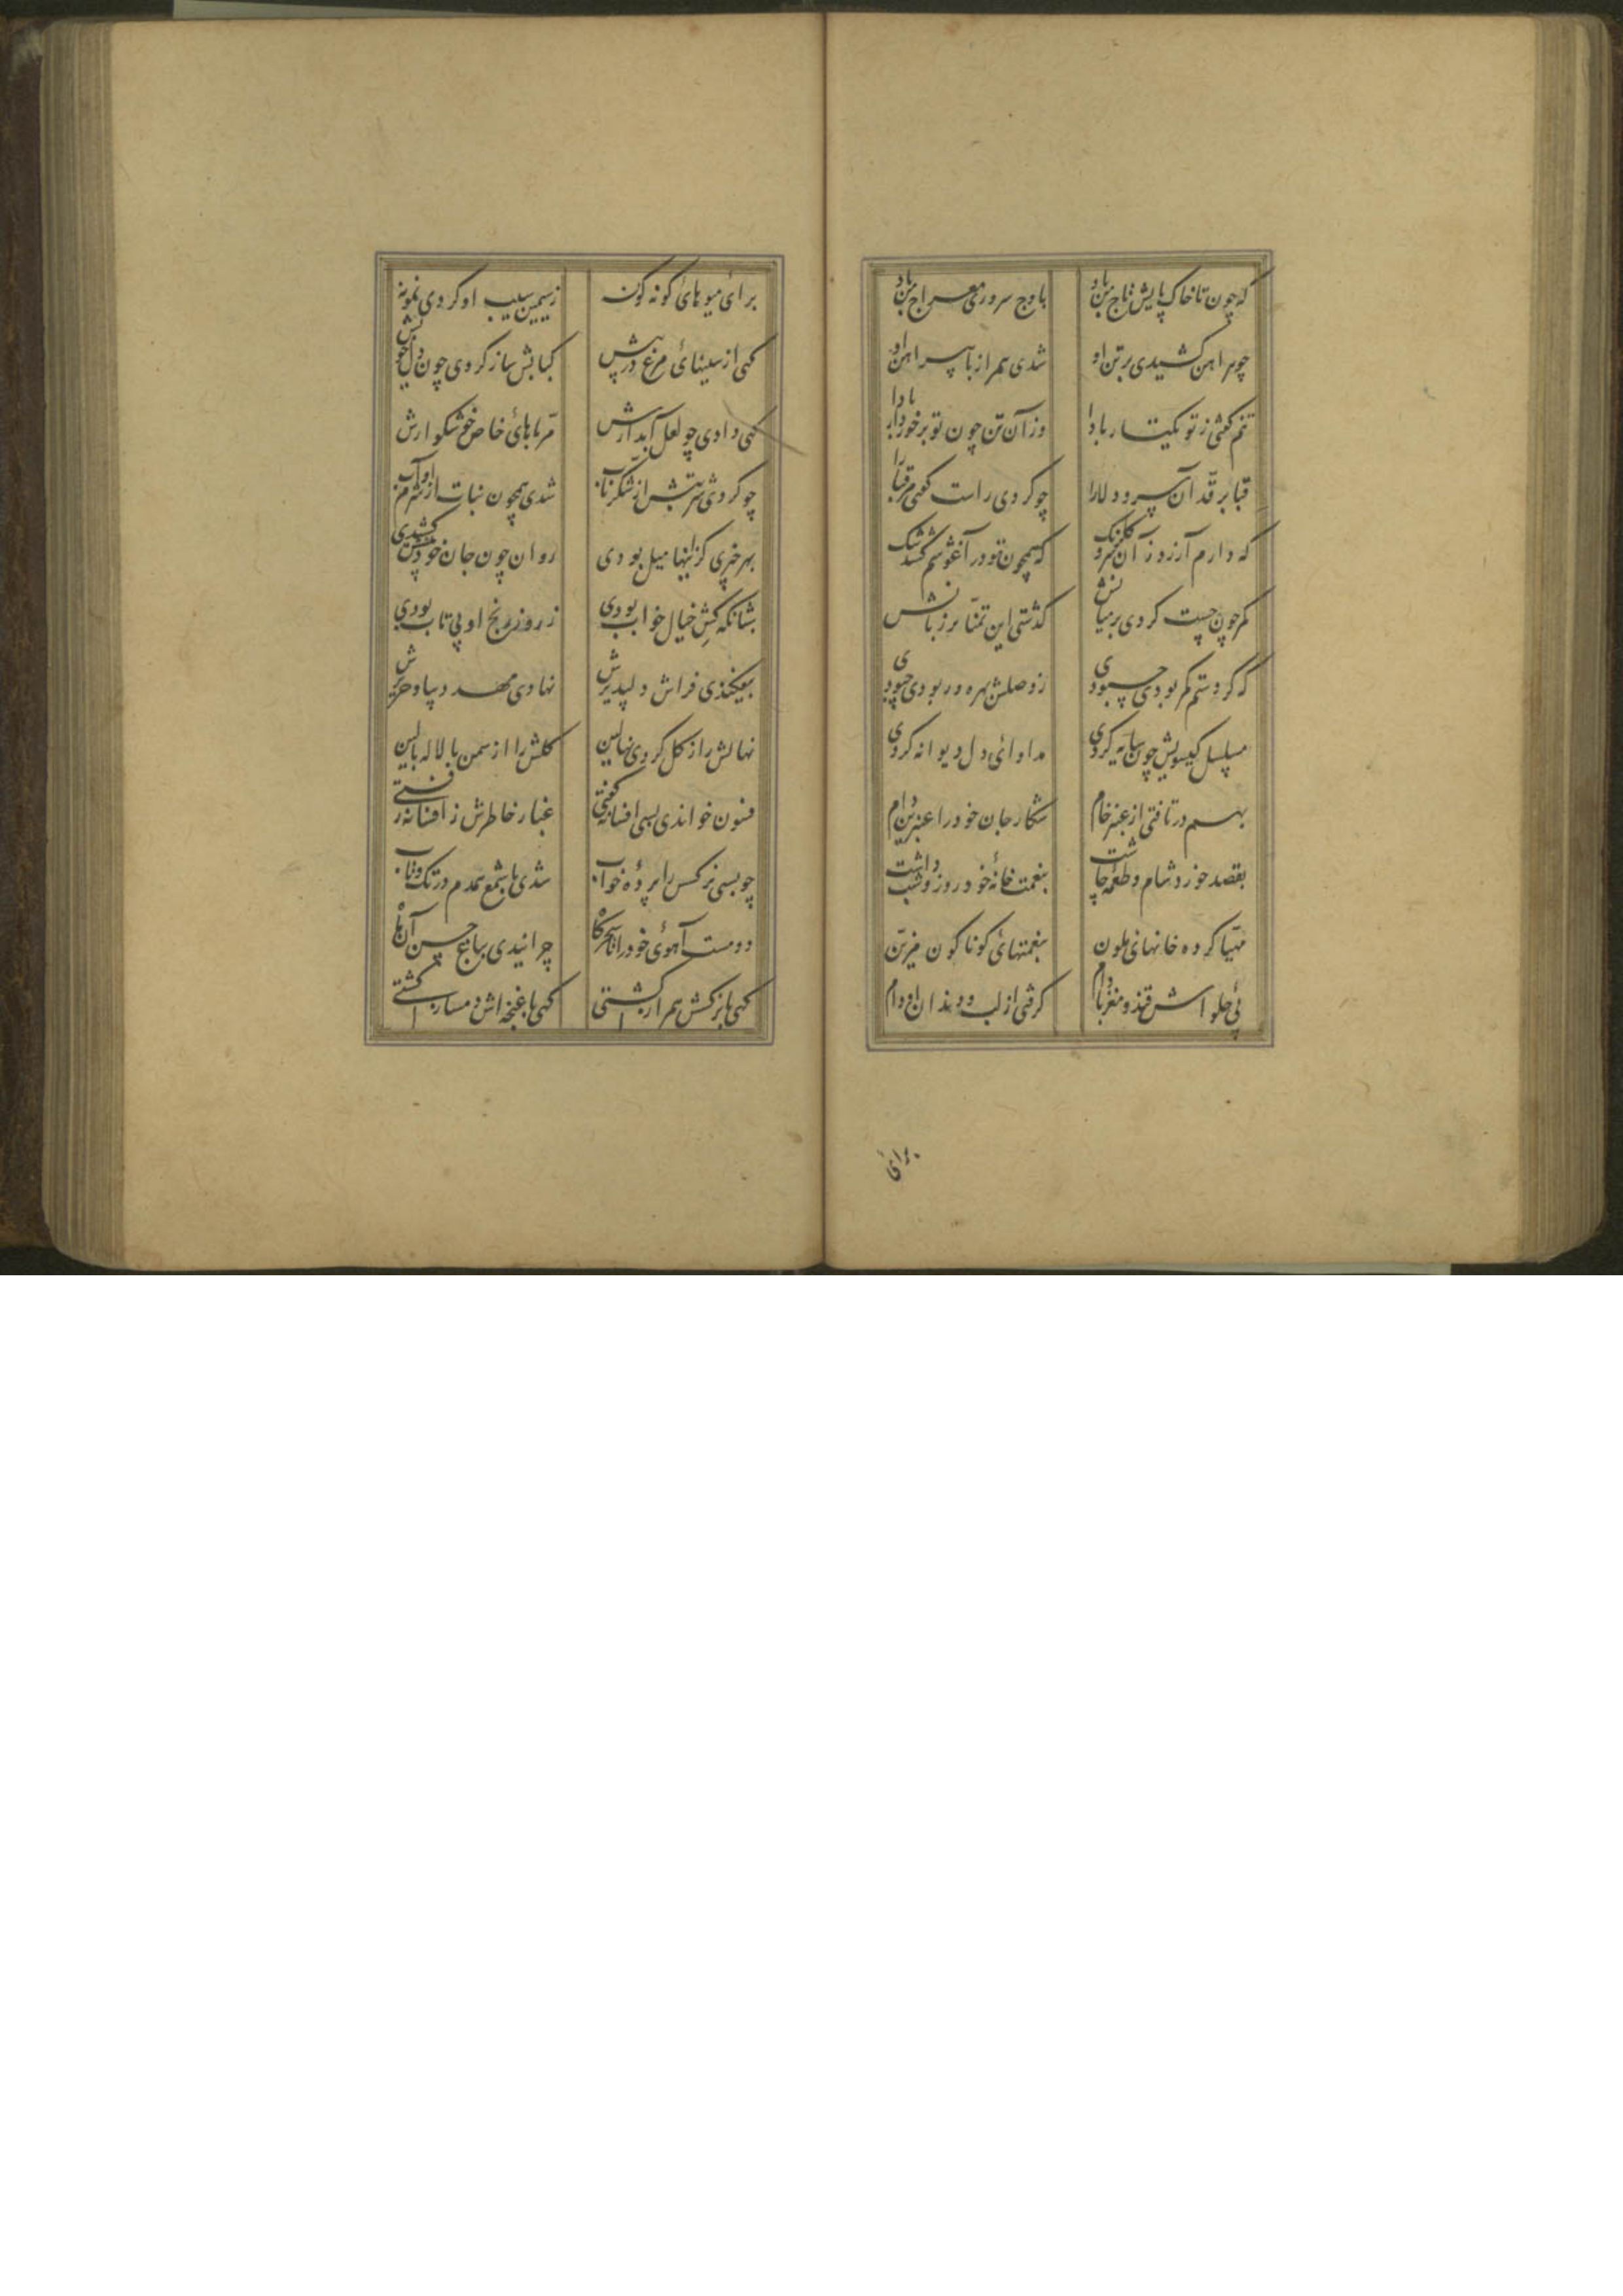 که چون تا خاک پایش تاج من باد باوج سروری معراج من باد
چو پیراهن کشیدی بر تن او شدی همراز با پیراهن او
تنم گفتی ز تو یکتار بادا وز آن تن چون تو برخوردار بادا
قبا بر قد آن سرو دلارا چو کردی راست گفتی مر قبا را
که دارم آرزو ز آن سرو گلرنگ که همچون تو در آغوشم کشد تنگ
کمر چون چست کردی بر میانش گذشتی این تمنا بر زبانش
که گر دستم کمر بودی چه بودی ز وصلش بهره ور بودی چه بودی
مسلسل گیسویش چون شانه کردی مداوای دل دیوانه کردی
بهم در تافتی از عنبر خام شکار جان خود را عنبرین دام
بقصد خورد شام و طعمه چاشت بنعمت خانهٔ خود روز و شب داشت
مهیا کرده خانهای ملون بنعمتهای کوناکون مزین
پی حلواش قند و مغز بادام گرفتی از لب و دندان او وام
برای
برای میوهای کونه کونه ز سیمین سیب او کردی نمونه
کهی از سینهای مرغ در پیش کبابش ساز کردی چون دل خویش
کهی دادی چو لعل آبدارش مرباهای خاص خوشکوارش
چو کردی شربتش از شکر ناب شدی همچون نبات از شرم او آب
بهر چیزی کز اینها میل بودی روان چون جان خود پیشش کشیدی
شبانکه کش خیال خواب بودی ز روز و رنج او بی تاب بودی
بیفکندی فراش دلپذیرش نهادی مهد دیبا و حریرش
نهالش را ز کل کردی نهالین کلش را از سمن با لاله بالین
فسون خواندی بسی افسانه گفتی غبار خاطرش ز افسانه رفتی
چو بستی نرکس را پردهٔ خواب شدی با شمع همدم در تک و تاب
دو مست آهوی خود را تا سحرکاه چرانیدی بباغ حسن آن ماه
کهی با نرکسش همراز گشتی کهی با غنچه‌اش دمساز گشتی